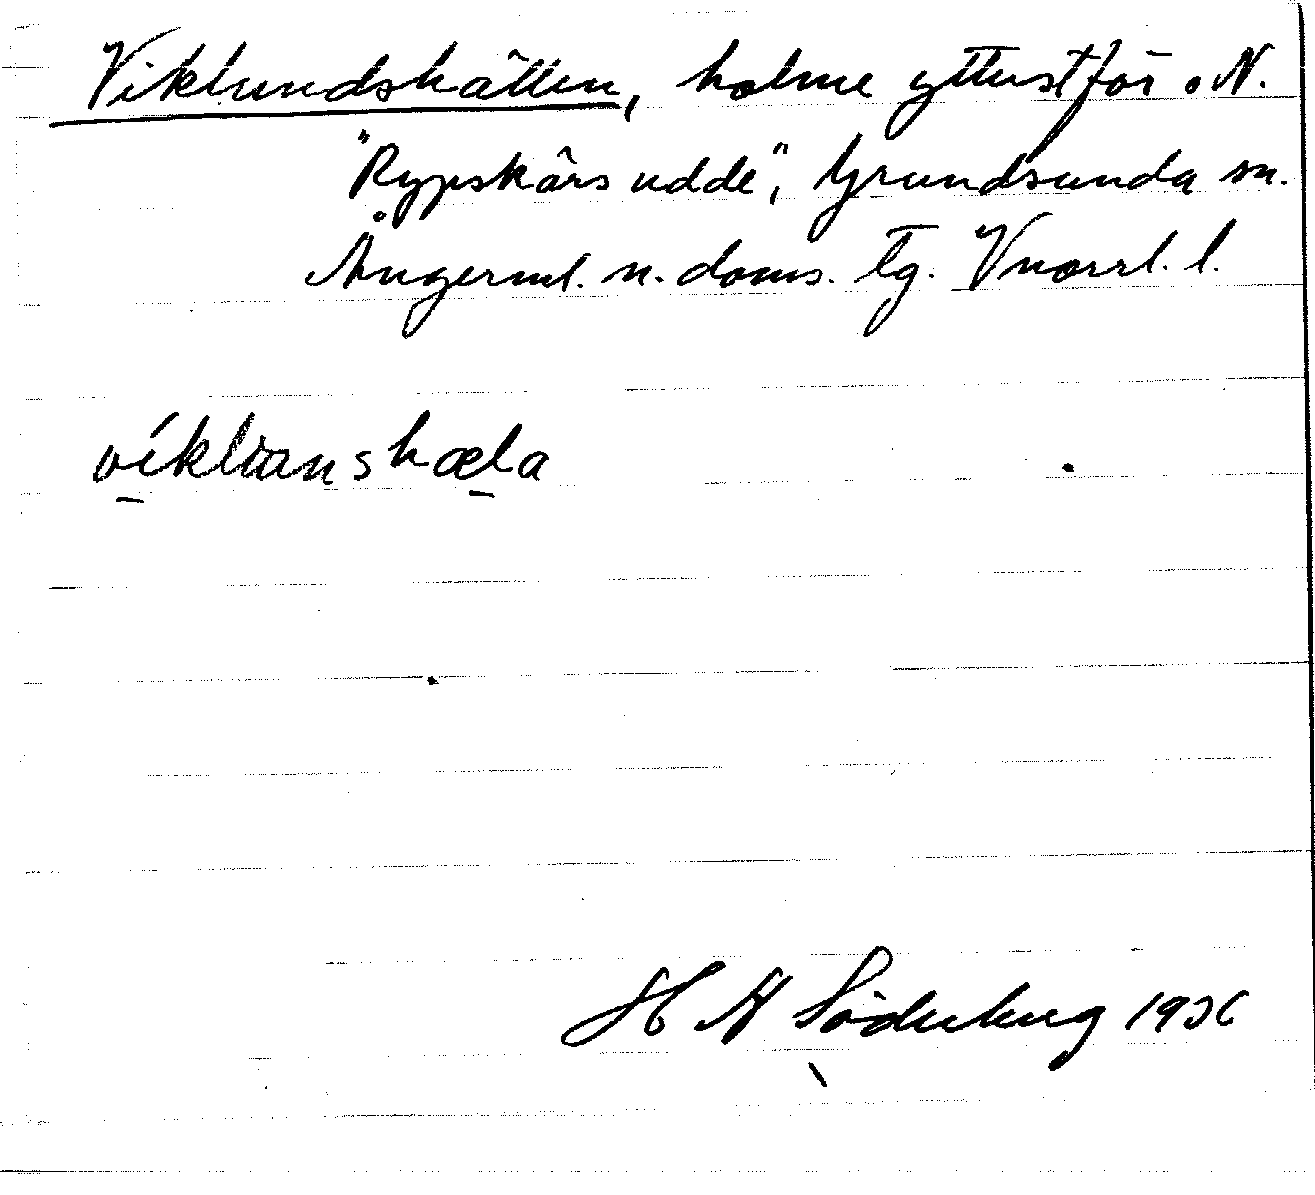 Viklundskällen, holme ytterst för o N.
"Rypskärs udde", Grundsunda sn.
Ångerml. n. doms. tg. Vnorrl. l.
víklúanshæla
H A Söderberg 1936